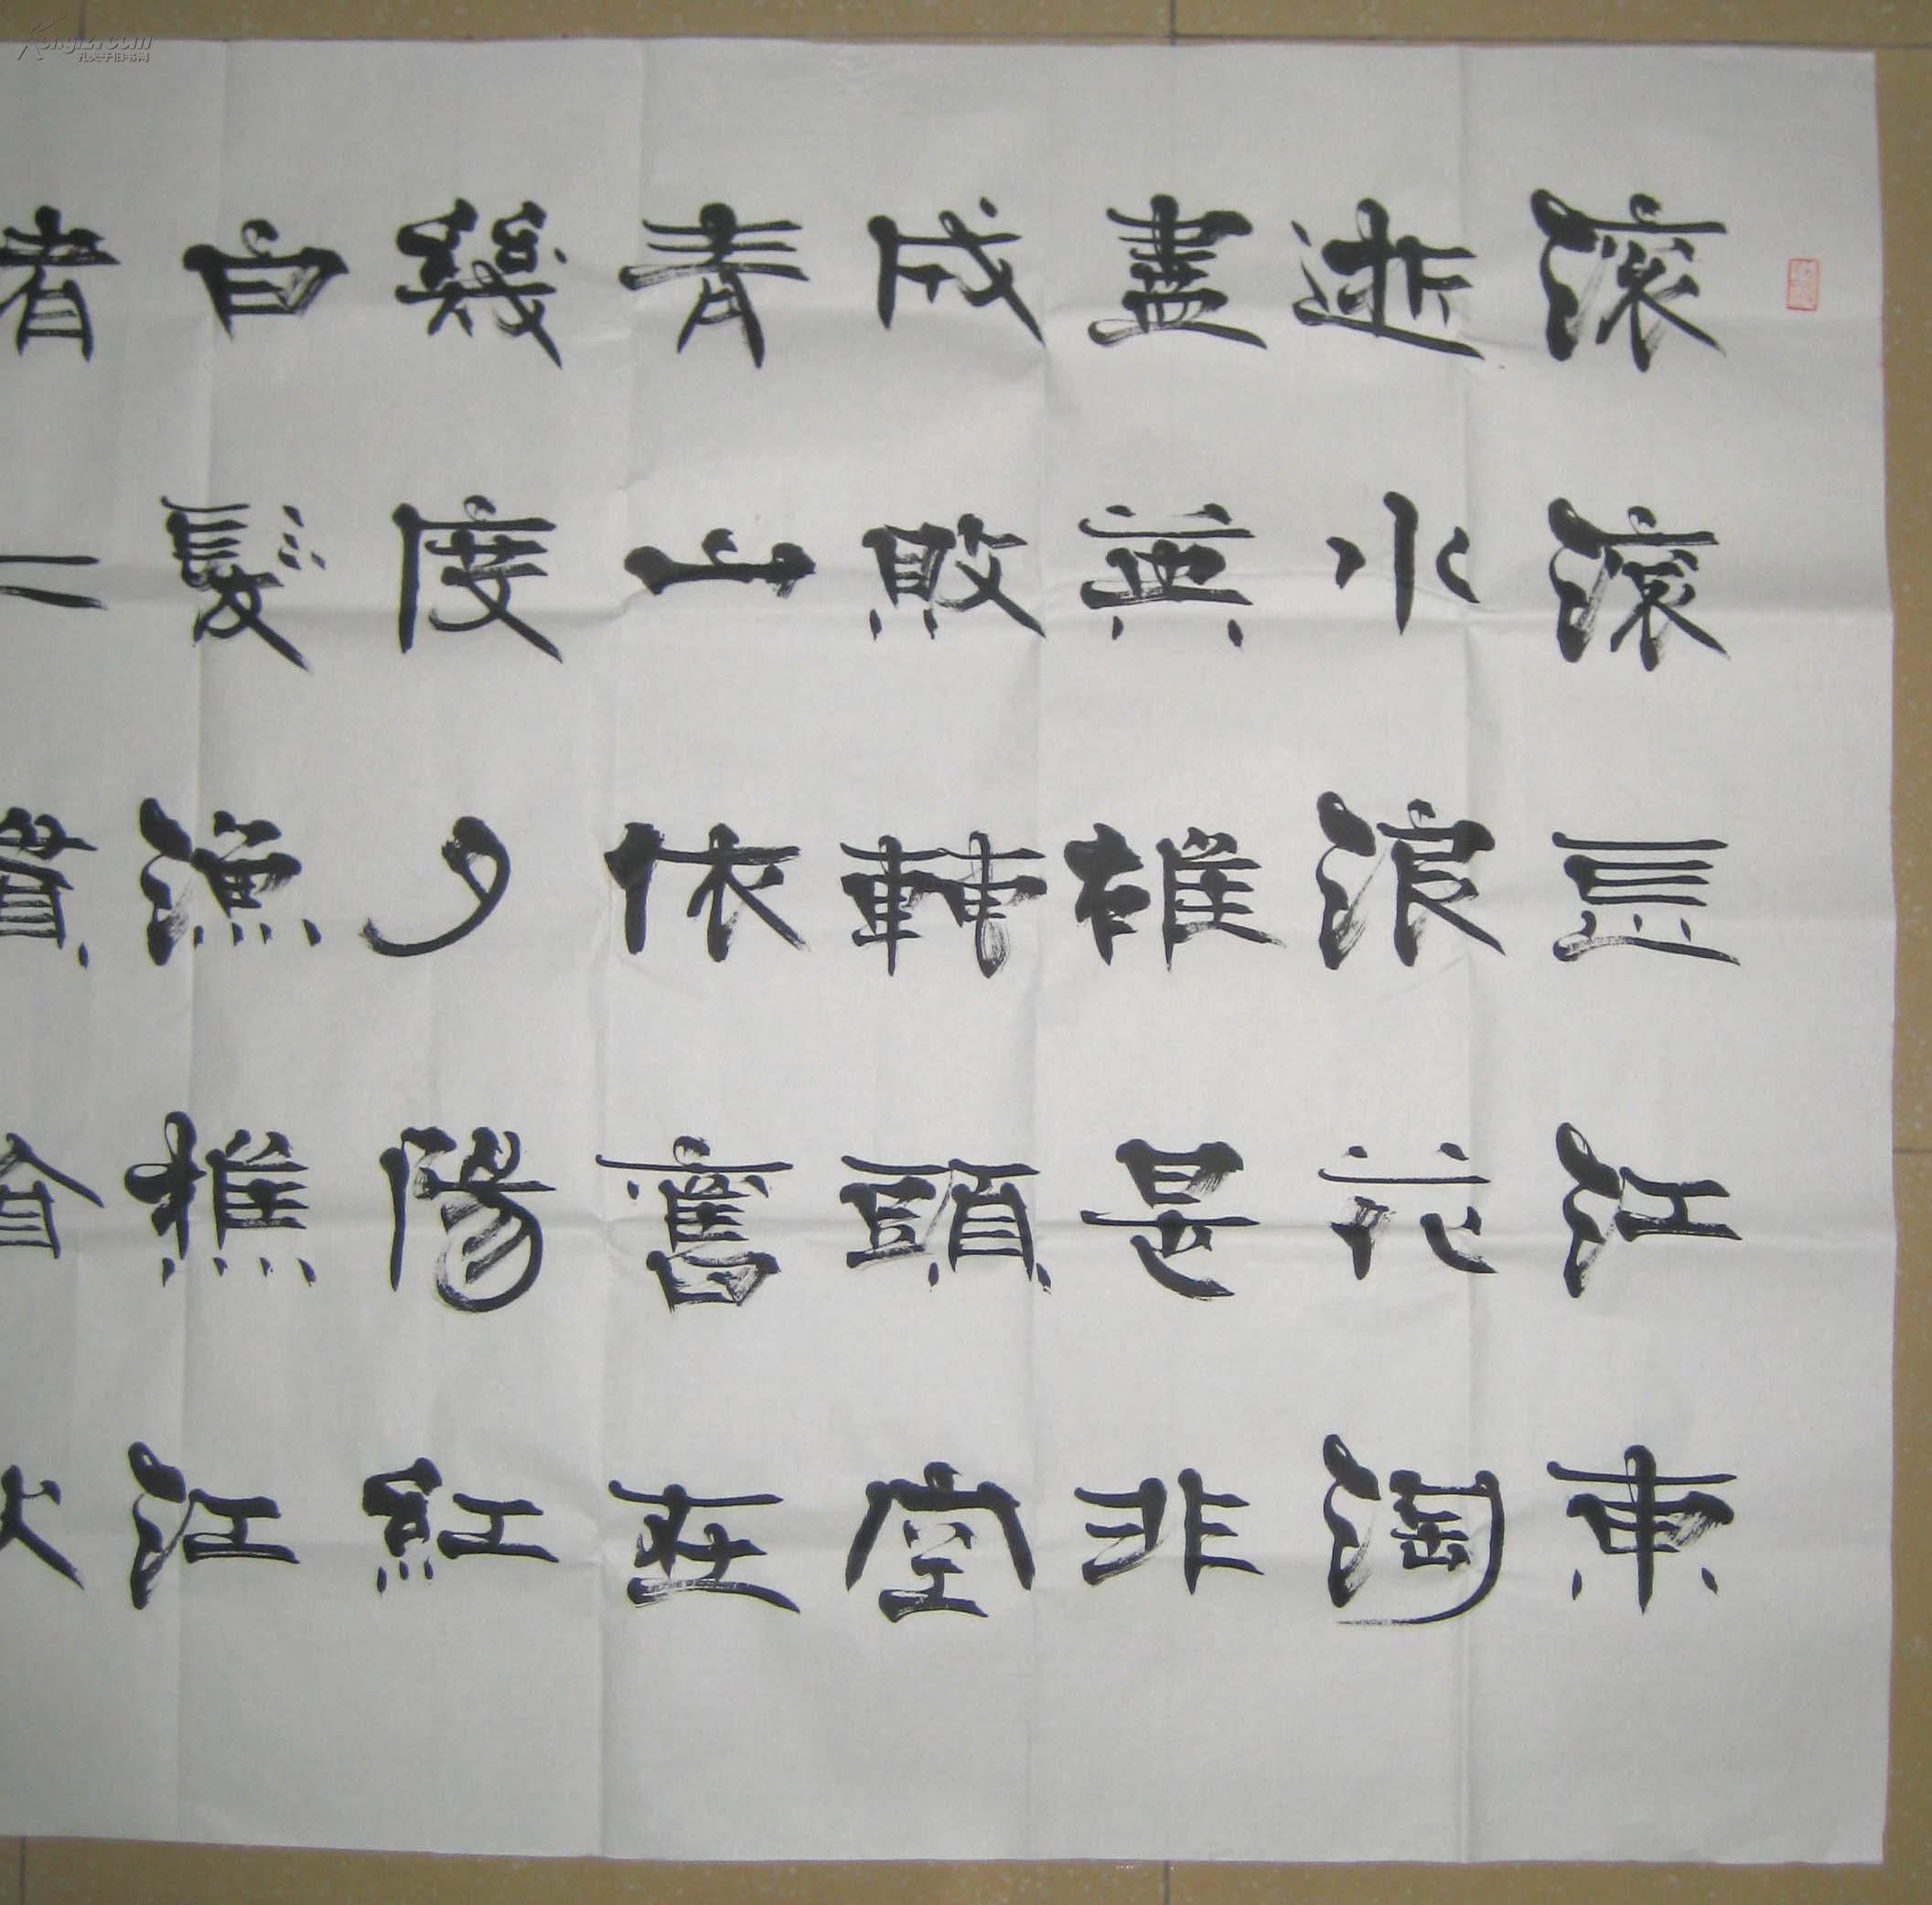 滚滚長江東
逝水浪花淘
盡英雄是非
成敗轉頭空
青山依舊在
幾度夕陽紅
白髮漁樵江
孔夫子旧书网